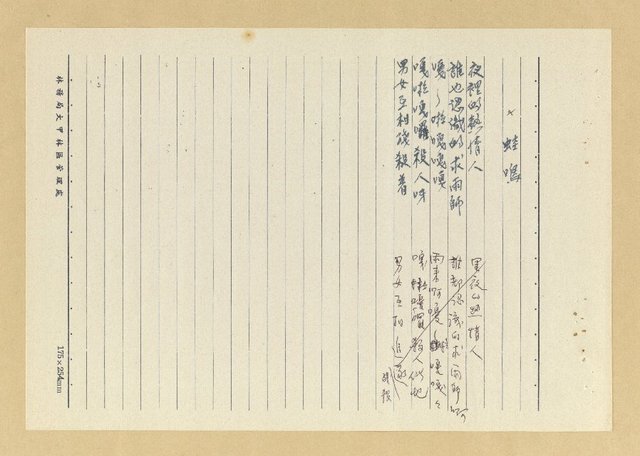 蛙鳴
夜裡的熱情人
誰也認識的求雨師
嘎～啦嘎嘎嘎
嘎啦嘎囉殺人呀
男女互相殘殺着
黑夜的熱情人
誰都認識的求雨師啊
雨來啊嘎 嘎嘎
男女互相追逐
林務局大甲林區管理處
175×254mm